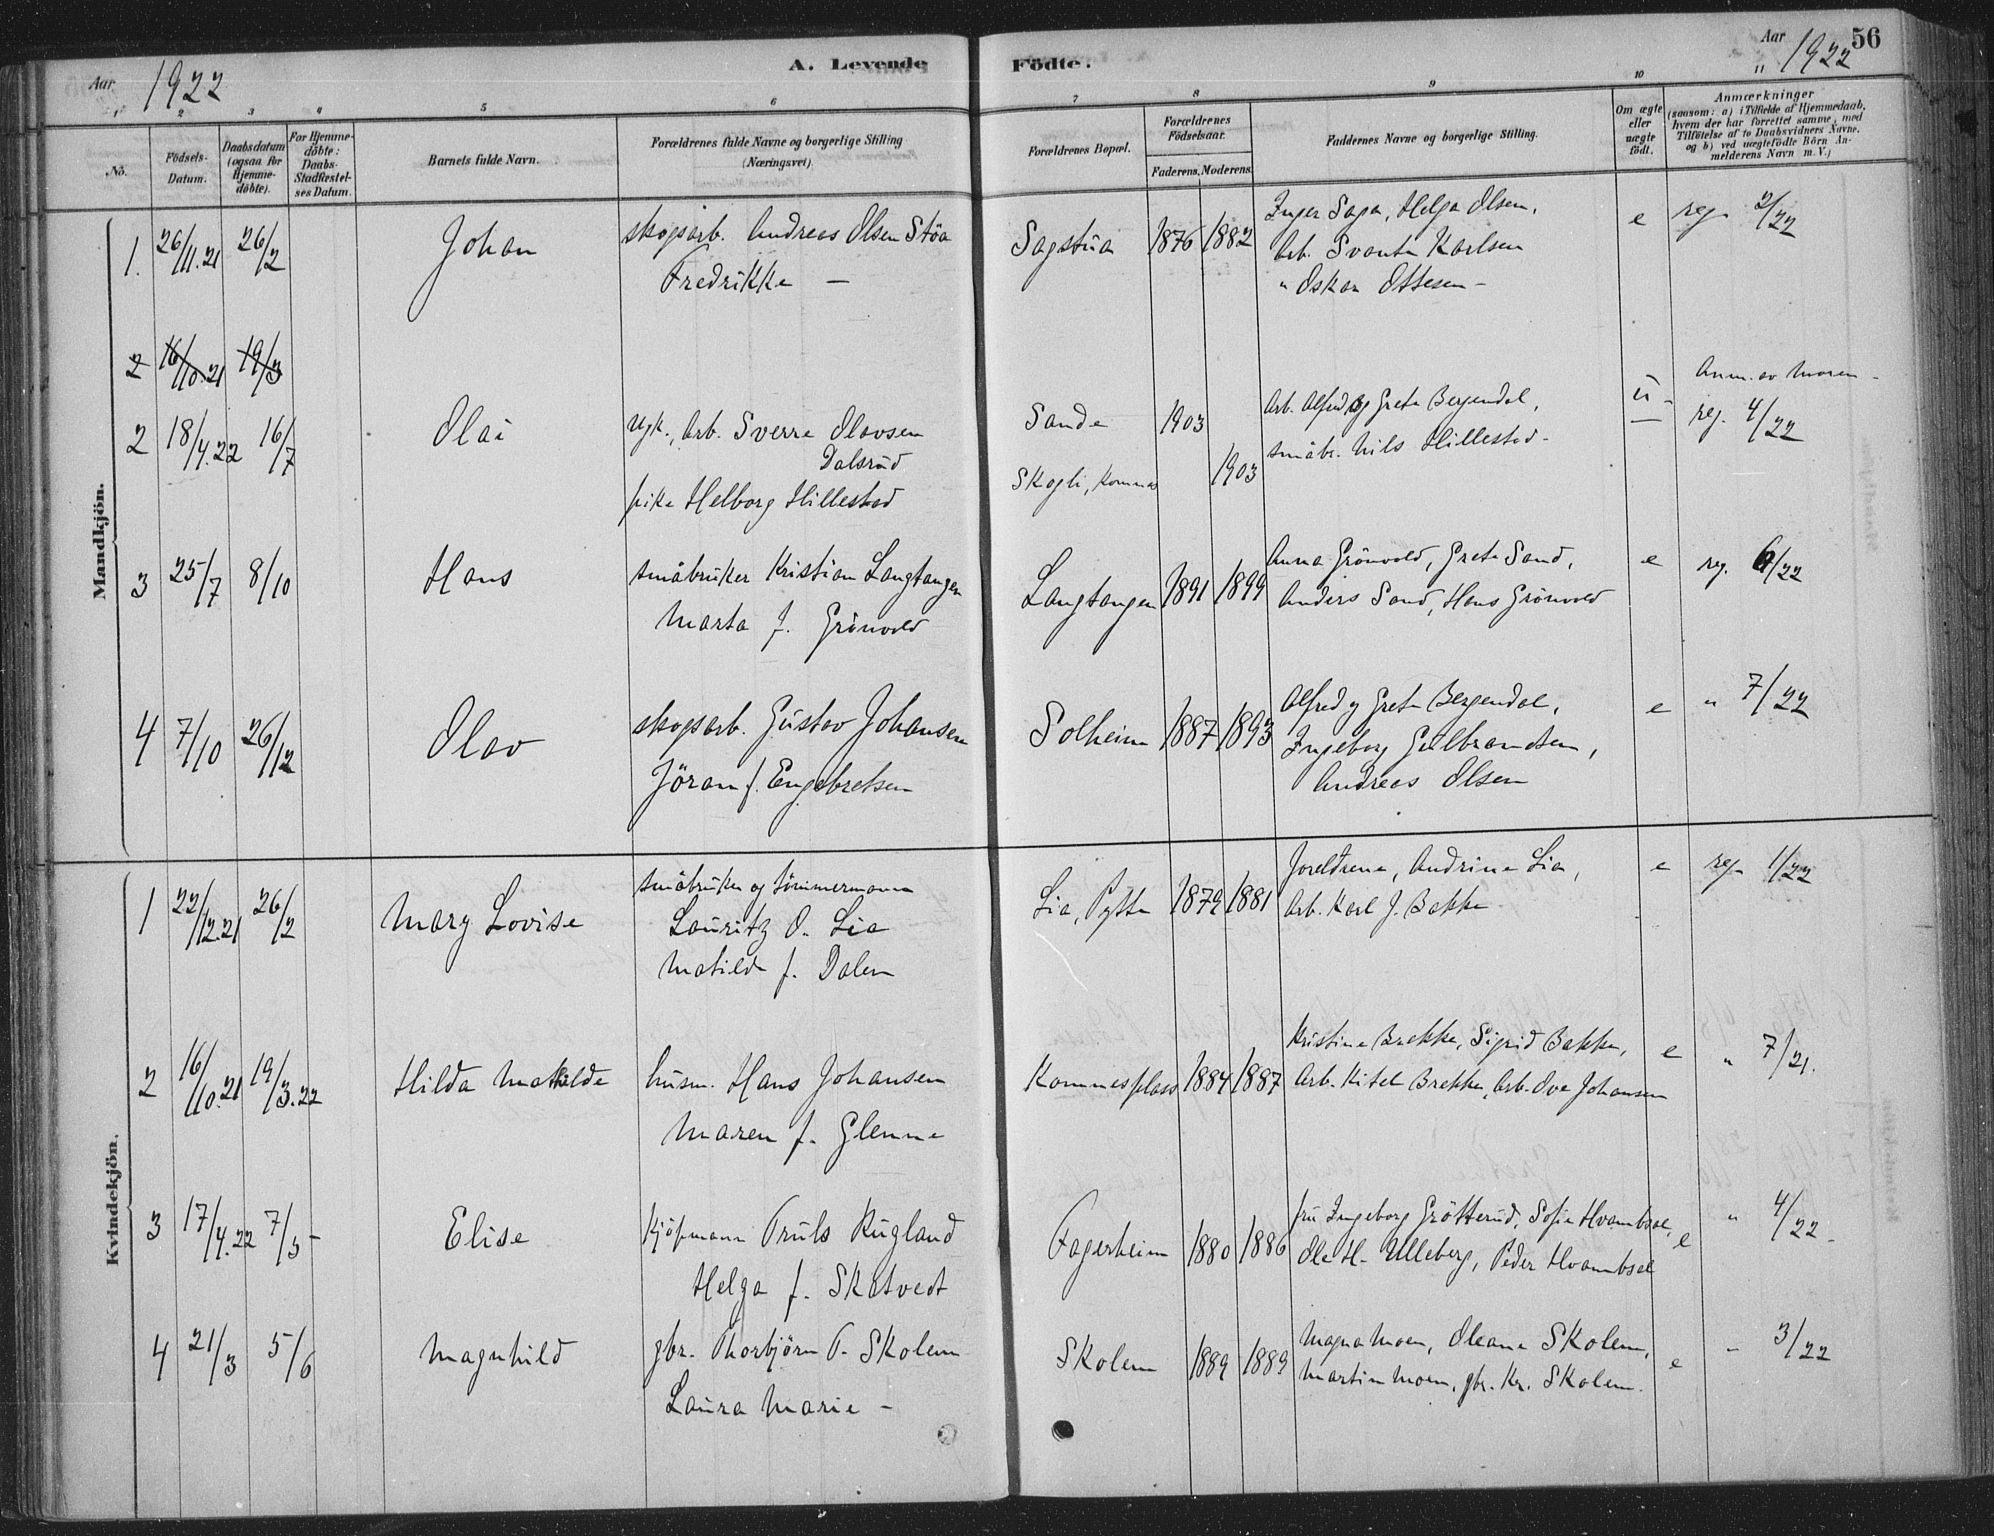 Aar 1922
A. Levende Födte.
Aar 1922
56
1 2 3 4 5 6 7 8 9 10 11
No.
Födsels-Datum.
Daabsdatum (ogsaa for Hjemme-döbte).
For Hjemme-döbte: Daabs-Stadfæstel-ses Datum.
Barnets fulde Navn.
Forældrenes fulde Navne og borgerlige Stilling (Næringsvei).
Forældrenes Bopæl.
Forældrenes Födselsaar.
Faderens. Moderens.
Faddernes Navne og borgerlige Stilling.
Om ægte eller uægte födt.
Anmærkninger
(saasom: a) i Tilfælde af Hjemmedaab,
hvem der har forrettet samme, med
Tilföielse af to Daabsvidners Navne,
og b) ved uægtefödte Börn An-
melderens Navn m. V.)
Mandkjön.
1. 26/11.21 26/2 Johan skogsarb. Andreas Olsen Stöa Sagstua 1876 1882 Inger Saga, Helga Olsen, e reg. 2/22
Fredrikke — Arb. Svante Karlsen
" Oskar Ottesen -
2 16/10.21 19/3
Anm. av moren -
2 18/4.22 16/7 Olai Ugk., Arb. Sverre Olavsen Sande 1903 Arb. Alfred og Grete Bergendal, u - reg. 4/22
Dalsrud småbr. Nils Hillestad -
pike Helborg Hillestad Skogli, 1903
3 25/7 8/10 Hans småbruker Kristian Langtangen Langtangen 1891 1899 Anna Grönvold, Grete Sand, e reg. 6/22
Marta f. Grönvold Anders Sand, Hans Grönvold
4 7/10 26/12 Olav skogsarb. Gustav Johansen Solheim 1887 1893 Alfred og Grete Bergendal, e " 7/22
Jöran f. Engebretsen Ingeborg Gulbrandsen,
Andreas Olsen
Kvindekjön.
1 22/12.21 26/2 Mary Lovise småbruker og tömmermann Lia, Pytte 1879 1881 foreldrene, Andrine Lia, e reg. 1/22
Lauritz O. Lia Arb. Karl J. Bakke
Matilde f. Dalen
2 16/10.21 19/3.22 Hilda Mathilde husm. Hans Johansen Kommesplass 1884 1887 Kristine Brekke, Sigrid Bakken, e " 7/21.
Maren f. Glenne Arb. Kitel Brekke, Arb. Ove Johansen
3 17/4.22 7/5 - Elise kjöpmann Truls Rugland Fagerheim 1880 1886 fru Ingeborg Grötterud, Sofie Hvambsal, e " 4/22 -
Helga f. Skatvedt Ole H. Ulleberg, Peder Hvambsal
4 21/3 5/6 Magnhild gbr. Thorbjörn T. Skolem Skolem 1889 1889 Magna Moen, Oleane Skolem, e " 3/22
Laura Marie - Martin Moen, gbr. Kr. Skolem.